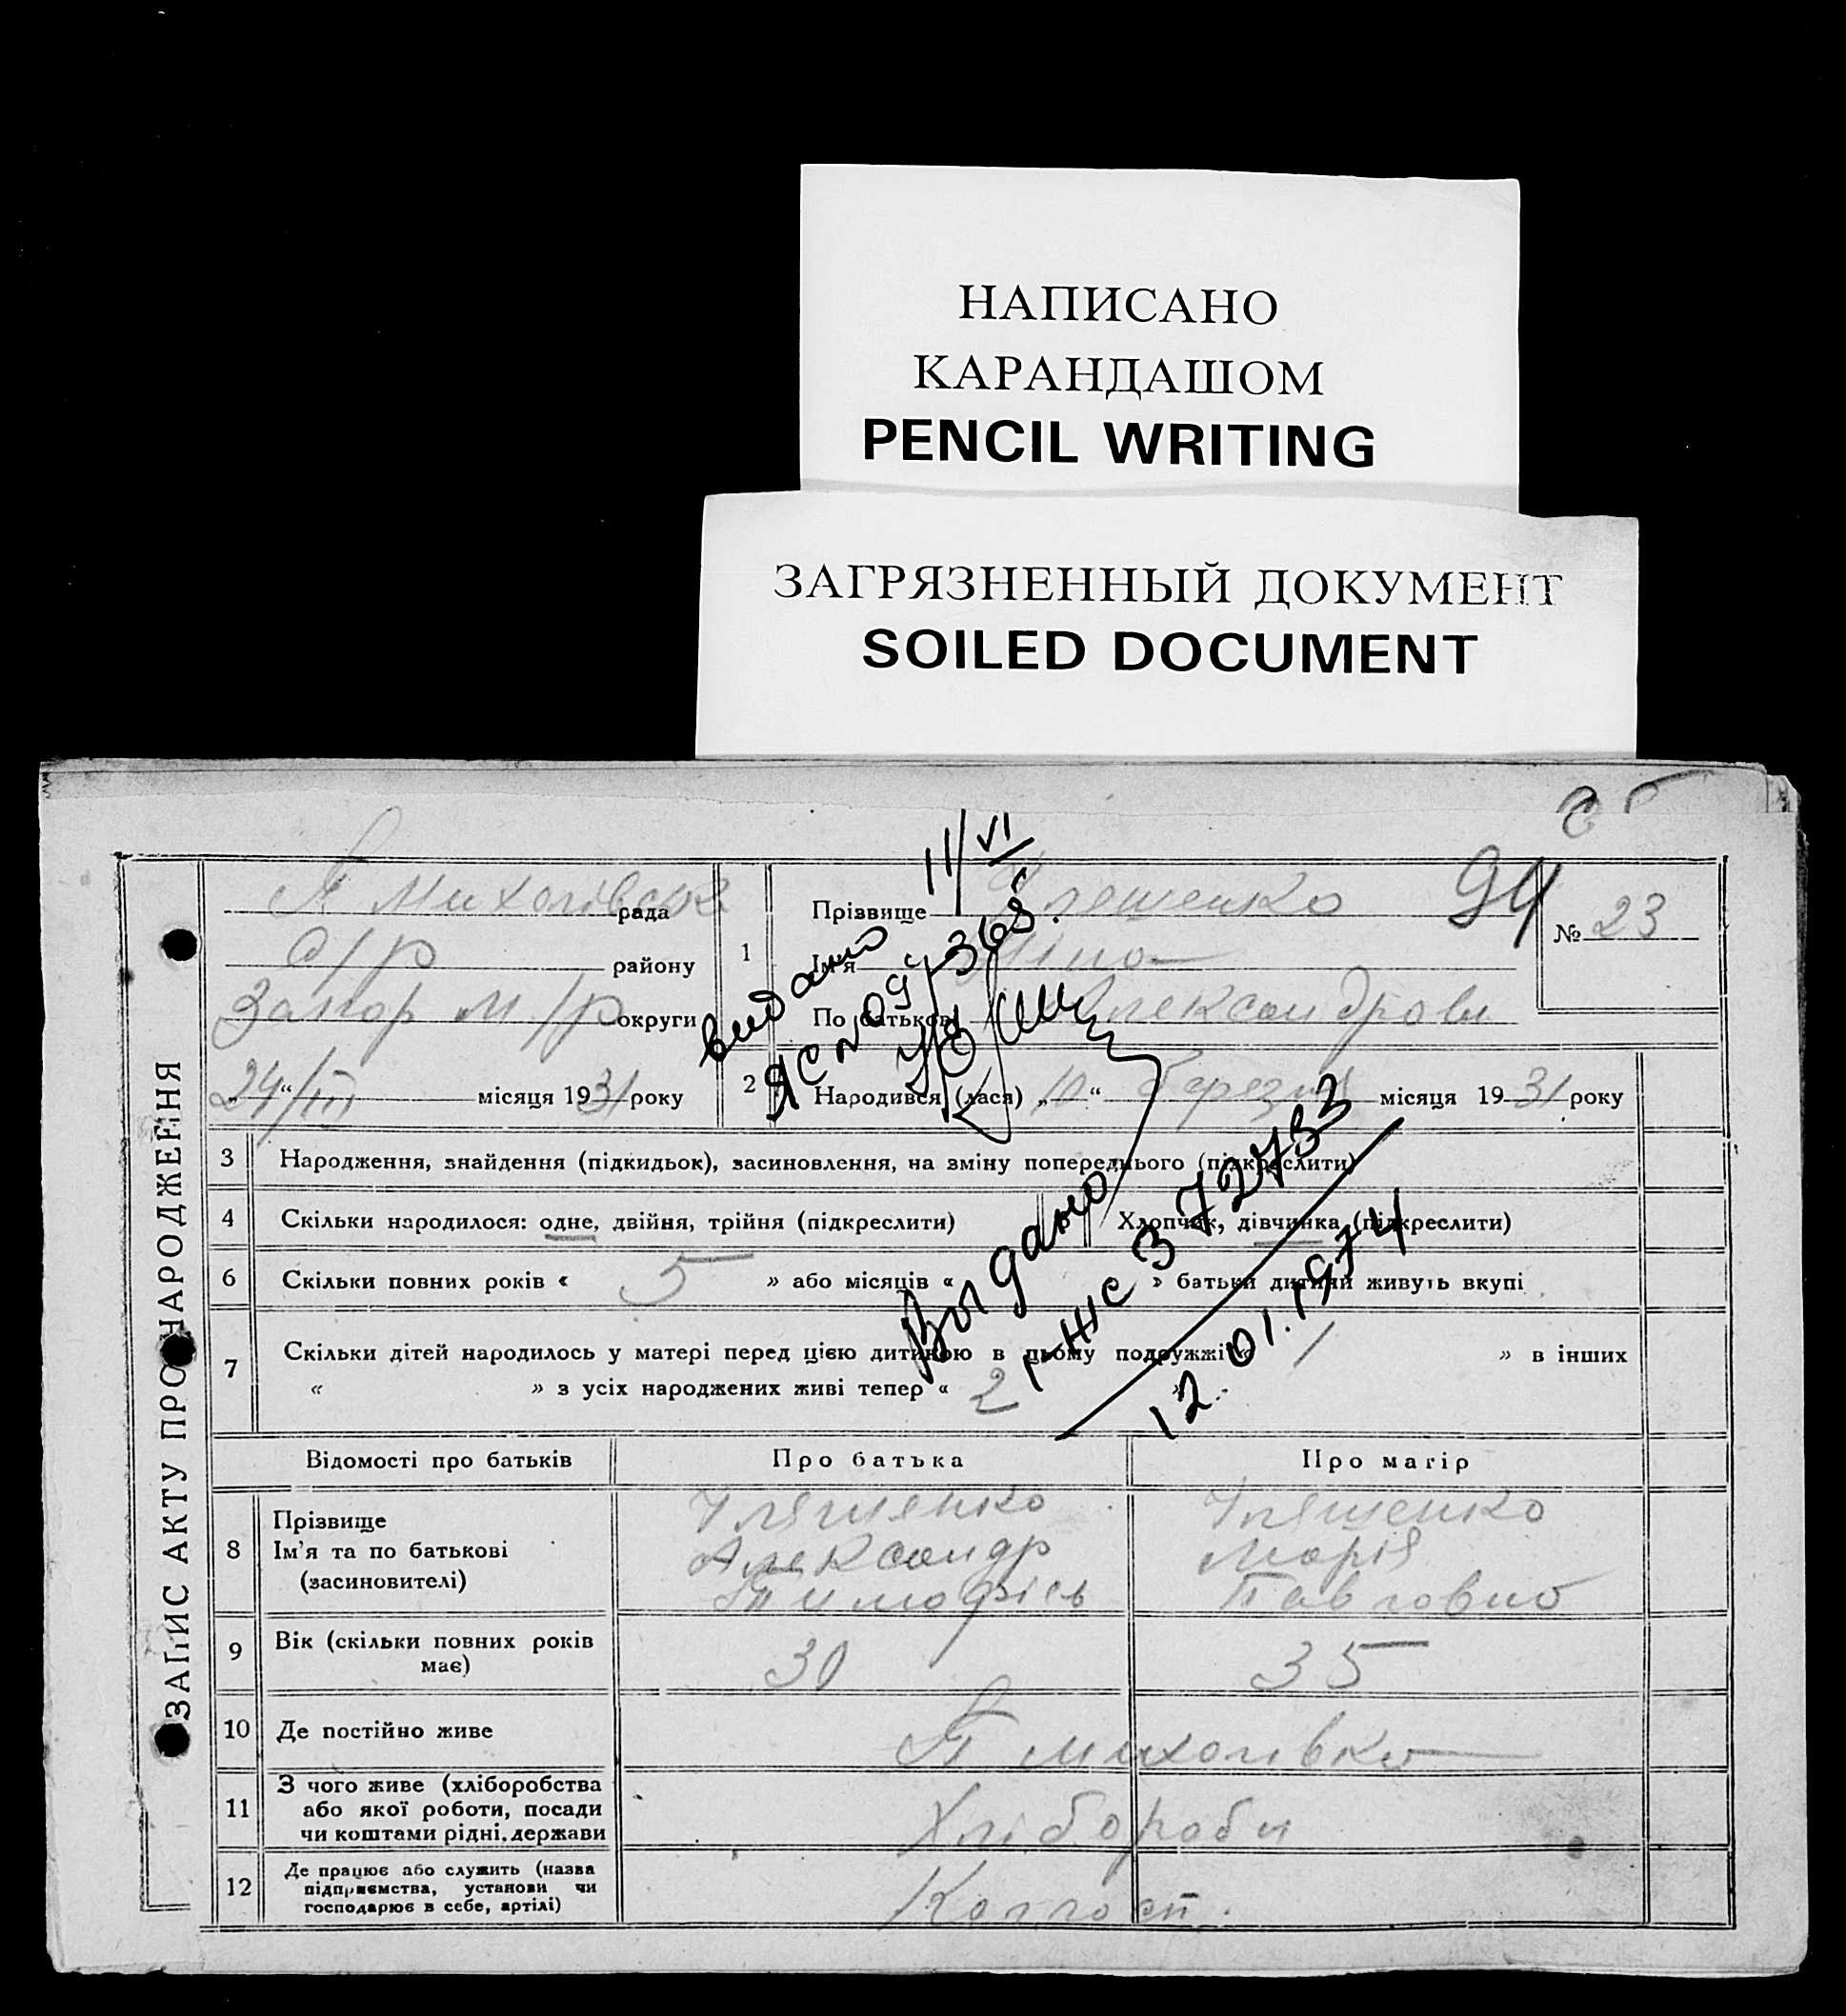 НАПИСАНО
КАРАНДАШОМ
PENCIL WRITING
ЗАГРЯЗНЕННЫЙ ДОКУМЕНТ
SOILED DOCUMENT
ЗАПИС АКТУ ПРО НАРОДЖЕННЯ
94
№ 23
рада
с/р району
Запор м/р округи
„24“/III місяця 1931 року
11/VI
видано
1 Прізвище
Ім'я
По батькові
2 Народився (лася) „10“ березня місяця 1931 року
3 Народження, знайдення (підкидьок), засиновлення, на зміну попереднього (підкреслити)
4 Скільки народилося: одне, двійня, трійня (підкреслити)
5 Хлопчик, дівчинка (підкреслити)
6 Скільки повних років « 5 » або місяців « » батьки дитини живуть вкупі
7 Скільки дітей народилось у матері перед цією дитиною в цьому подружжі « 1 » в інших
« » з усіх народжених живі тепер « 2 »
Выдано
1-НС 372733
12.01.1974
Відомості про батьків
Про батька
Про матір
8 Прізвище
Ім'я та по батькові
(засиновителі)
Александр
Тимофієв
Марія
Павловна
9 Вік (скільки повних років має)
30
35
10 Де постійно живе
11 З чого живе (хліборобства
або якої роботи, посади
чи коштами рідні, держави
Хлібороби
12 Де працює або служить (назва
підприємства, установи чи
господарює в себе, артілі)
Колгосп